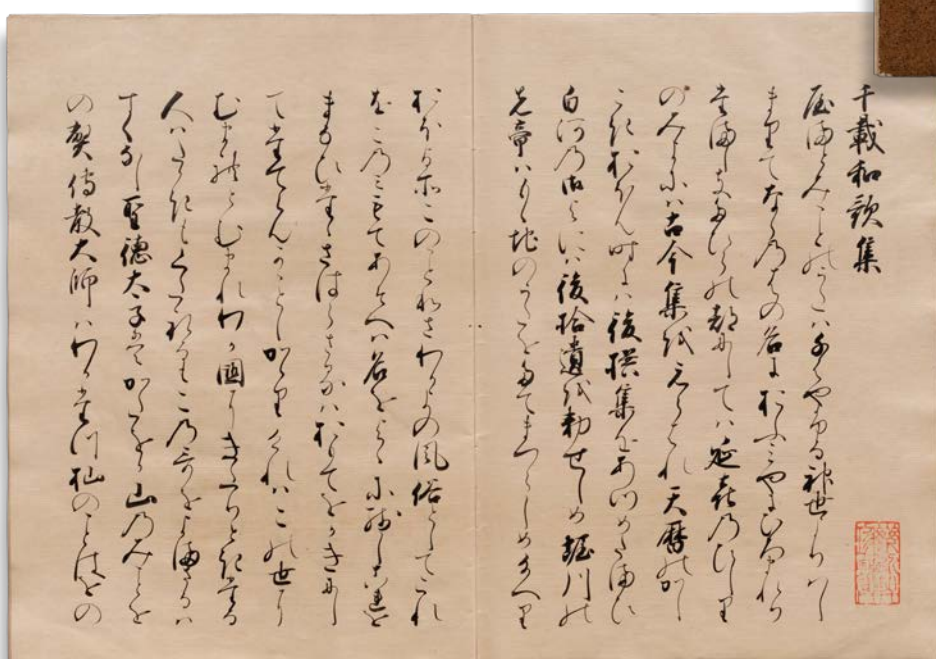 千載和歌集
やまとみことのうたハちはやふる神世よりハし
まりてならのはの名におふミやにひろまれり
たましきたひらの都にしてハ延喜のひしり
のみよにハ古今集をえらはれ天暦のかし
こきおほん時にハ後撰集をあつめたまひき
白河の御よにハ後拾遺を勅せしめ堀川の
先帝ハもゝ地のうたをたてまつらしめ給へり
おほよそこのことわさわかよの風俗としてこれ
をこのミもてあそへハ名をよゝにのこしこれを
まなひたつさはらさるハおもてをかきにし
てたてらんかことしかゝりけれハこの世に
むまれとむまれわか國にきたりときたる
人ハたかきもくたれるもこの哥をよまさるハ
すくなし聖徳太子はかたをか山のみことを
のへ傳教大師ハわかたつ杣のことはをの